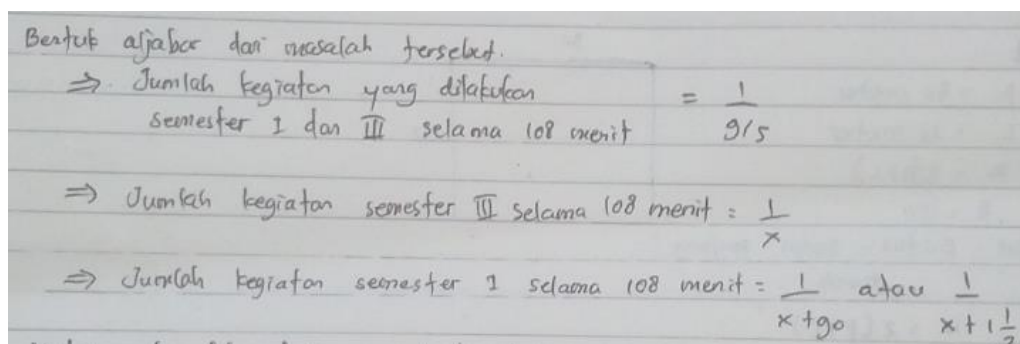 Bentuk aljabar dari masalah tersebut.
⇒ Jumlah kegiatan yang dilakukan
semester I dan III selama 108 menit = 1/(9/5)
⇒ Jumlah kegiatan semester III selama 108 menit = 1/x
⇒ Jumlah kegiatan semester I selama 108 menit = 1/(x+90) atau 1/(x+1 1/2)